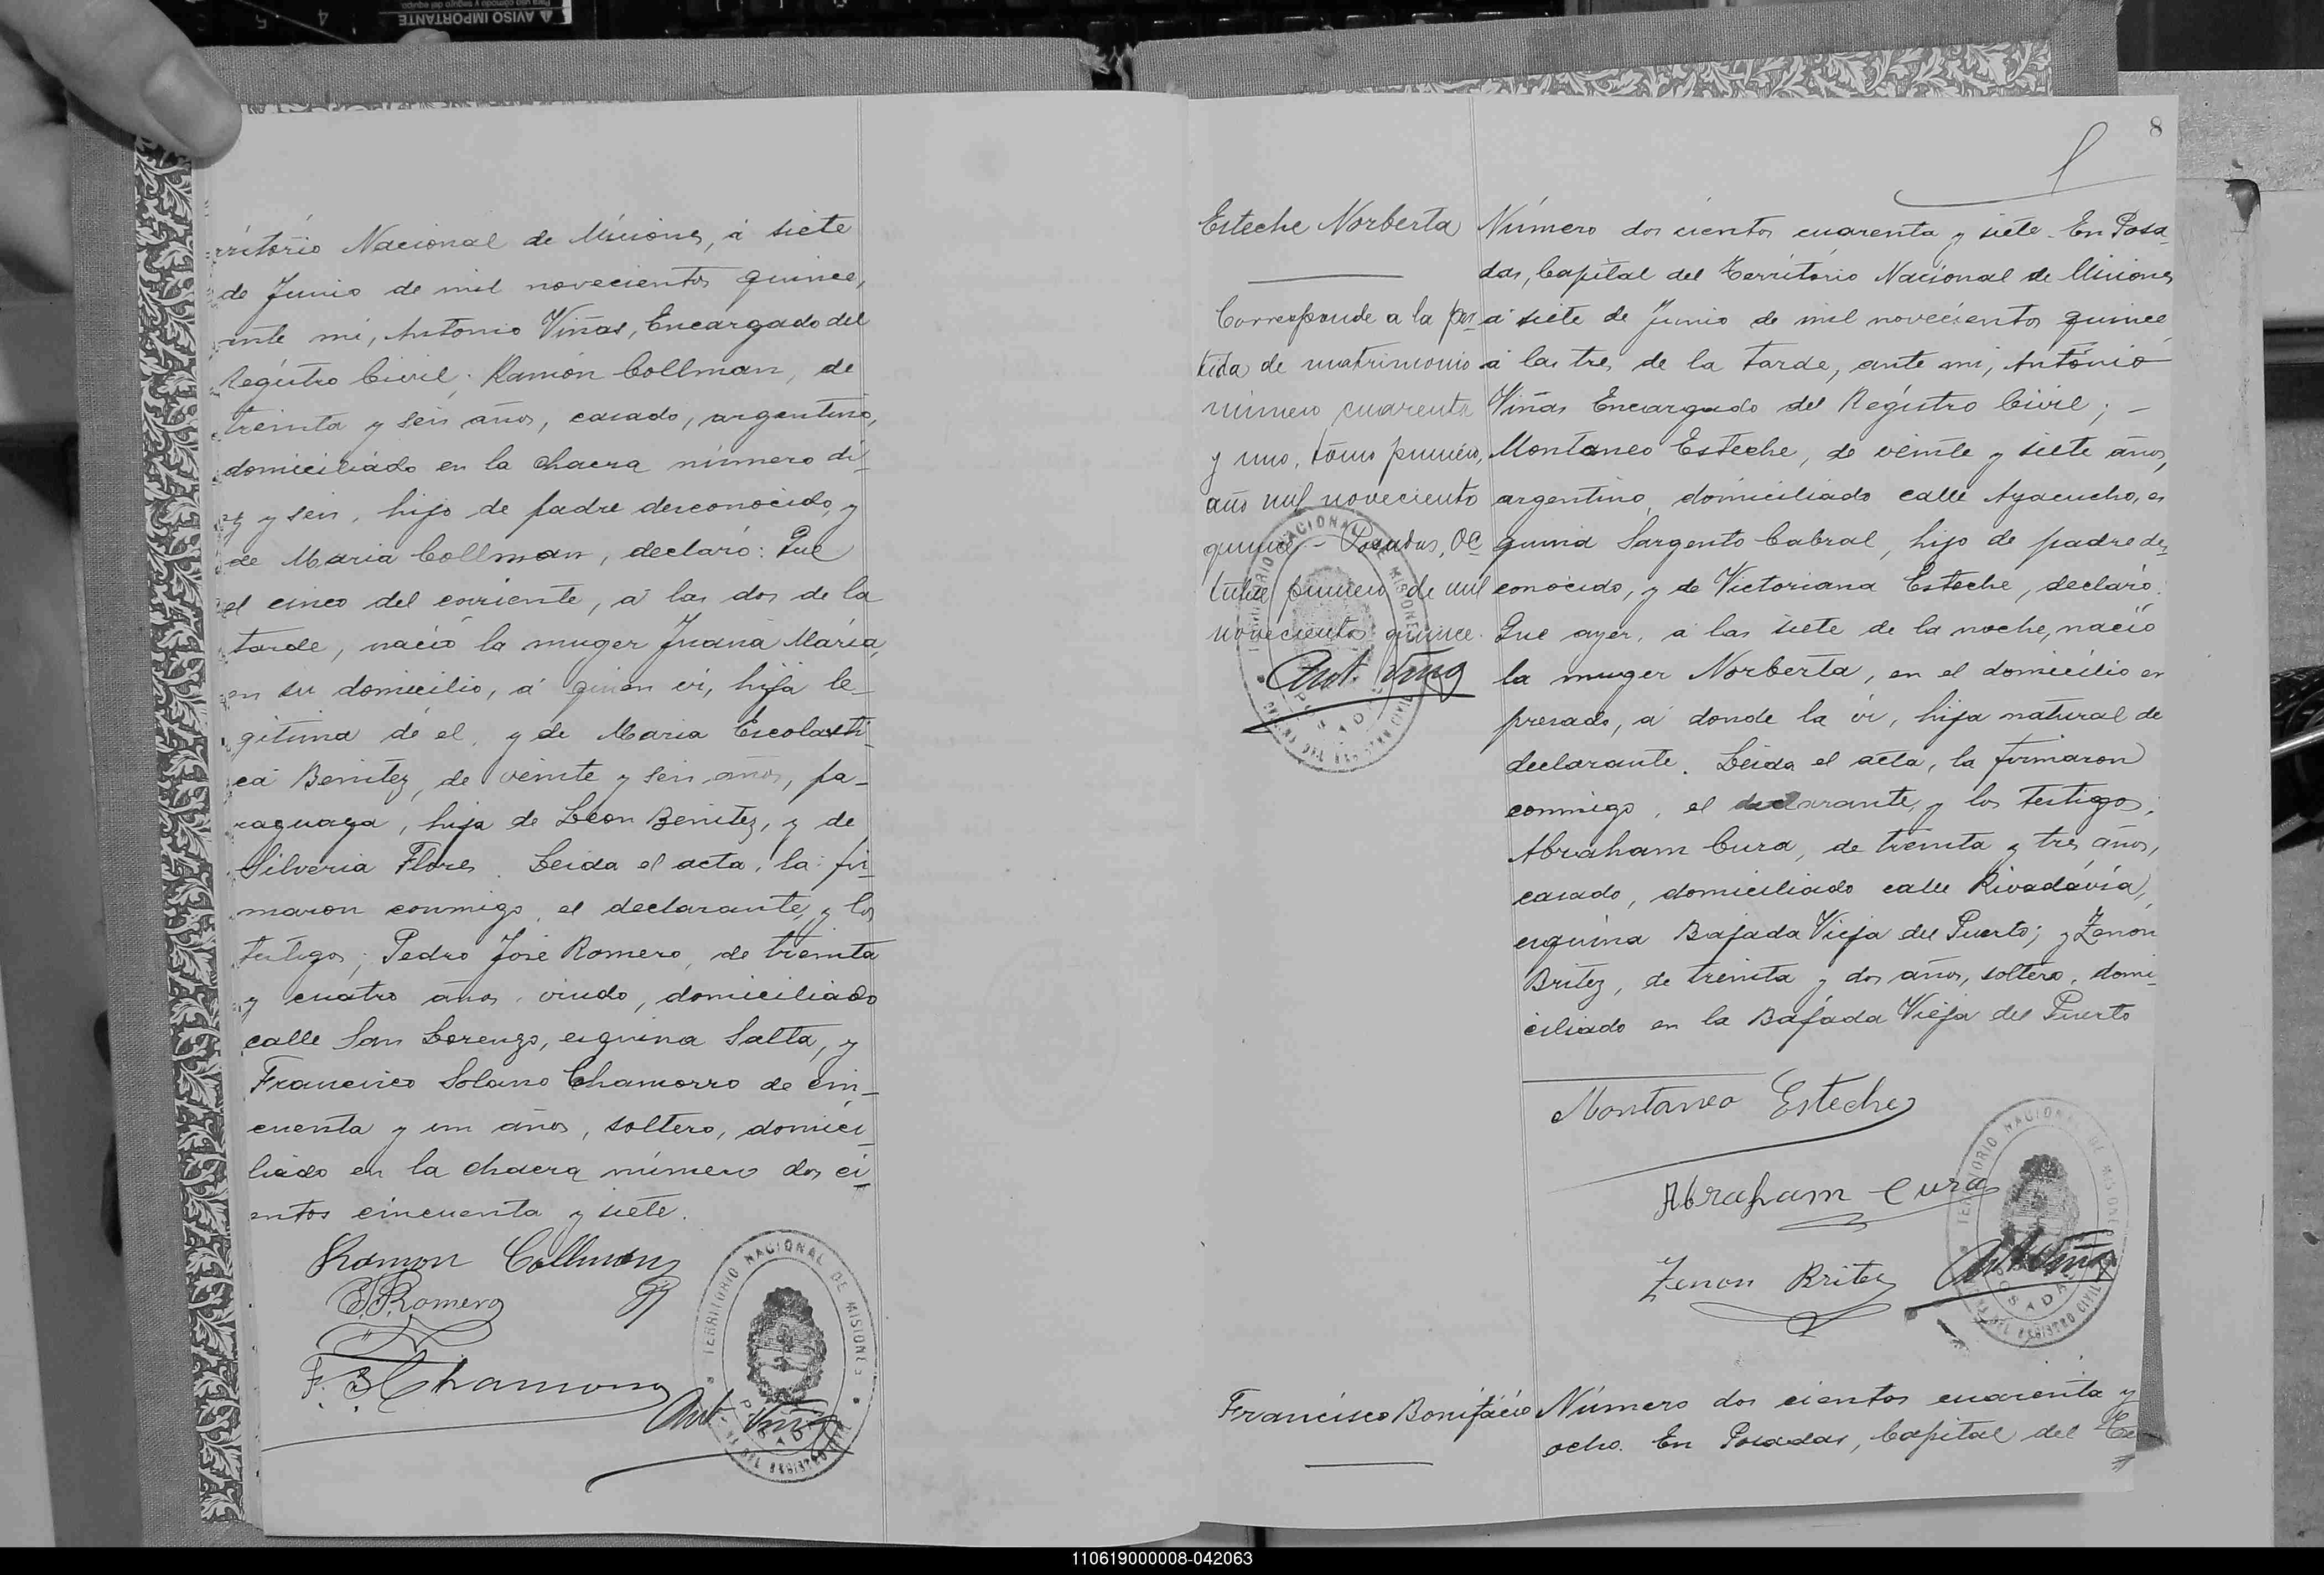 AVISO IMPORTANTE
rritorio Nacional de Misiones, á siete
de Junio de mil novecientos quince,
ante mi, Antonio Viñas, Encargado del
Registro Civil; Ramón Collman, de
treinta y seis años, casado, argentino,
domiciliado en la chacra número di-
ez y seis, hijo de padre desconocido, y
de Maria Collman, declaró: Que
el cinco del corriente, á las dos de la
tarde, nació la muger Juana María,
en su domicilio, á quien vi, hija le-
gitima de el, y de Maria Escolasti-
ca Benitez, de veinte y seis años, pa-
raguaya, hija de Leon Benitez, y de
Silveria Flores. Leida el acta, la fir-
maron conmigo, el declarante, y los
testigos; Pedro José Romero, de treinta
y cuatro años, viudo, domiciliado
calle San Lorenzo, esquina Salta, y
Francisco Solano Chamorro de cin-
cuenta y un años, soltero, domici-
liado en la chacra número dos ci-
entos cincuenta y siete.
Ramon Collman
P. J. Romero
F. S. Chamorro
Ant. Viñas
TERRITORIO NACIONAL DE MISIONES
POSADAS
8
Esteche Norberta
Corresponde a la par
tida de matrimonio
número cuarenta
y uno, tomo primero,
año mil novecientos
quince - Posadas, Oc
tubre primero de mil
novecientos quince.
Ant. Viñas
TERRITORIO NACIONAL DE MISIONES
POSADAS
Número dos cientos cuarenta y siete. En Posa-
das, Capital del Territorio Nacional de Misiones
á siete de Junio de mil novecientos quince
á las tres de la tarde, ante mi, Antonio
Viñas Encargado del Registro Civil; -
Montaneo Esteche, de veinte y siete años,
argentino, domiciliado calle Ayacucho, es
quina Sargento Cabral, hijo de padre des-
conocido, y de Victoriana Esteche, declaró:
Que ayer, a las siete de la noche, nació
la muger Norberta, en el domicilio ex
presado, á donde la vi, hija natural de
declarante. Leida el acta, la firmaron
conmigo, el declarante, y los testigos;
Abraham Cura, de treinta y tres años,
casado, domiciliado calle Rivadavia,
esquina Bajada Vieja del Puerto; y Zenon
Britez, de treinta y dos años, soltero, domi-
ciliado en la Bajada Vieja del Puerto
Montaneo Esteche
Abraham Cura
Zenon Britez
Ant. Viñas
TERRITORIO NACIONAL DE MISIONES
POSADAS
Francisco Bonifacio
Número dos cientos cuarenta y
ocho. En Posadas, Capital del Te
110619000008-042063